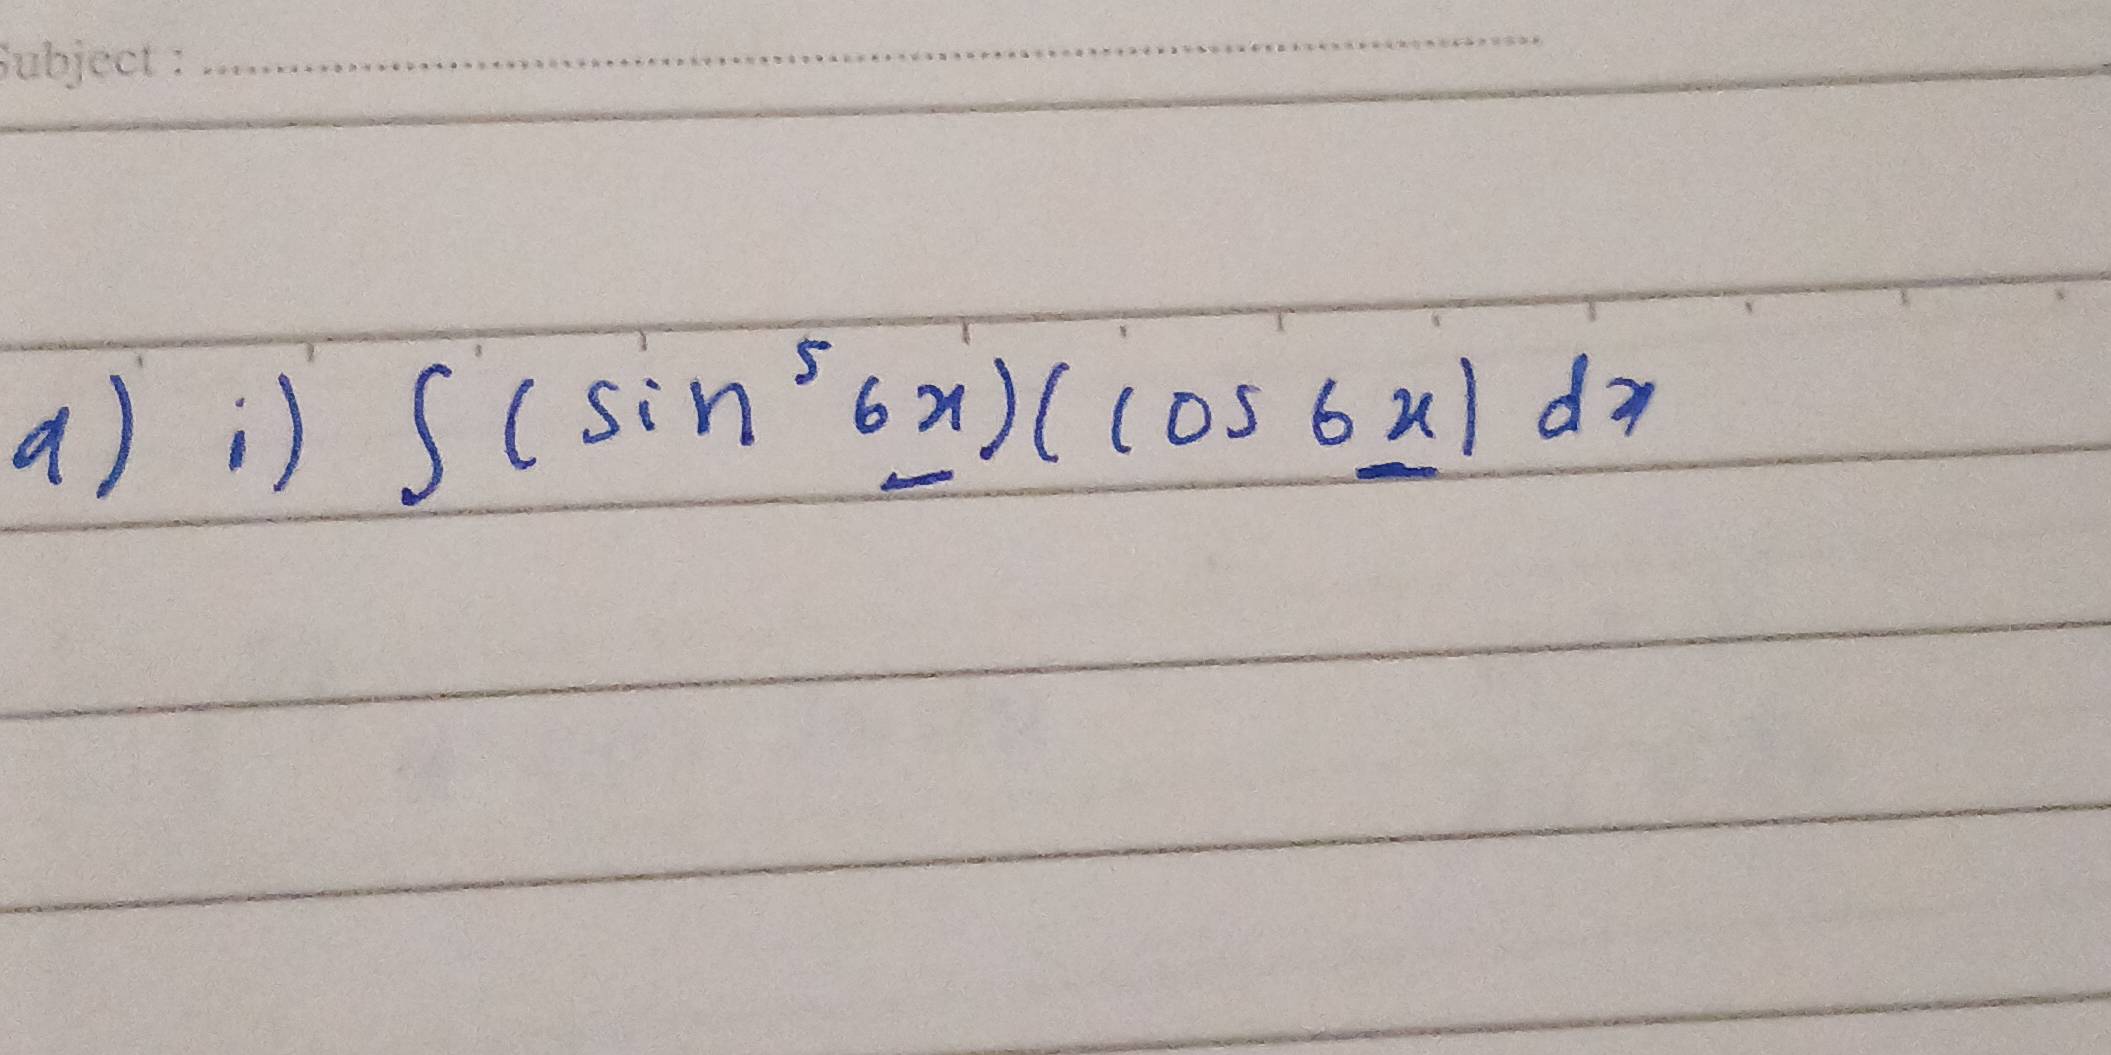 Subject : ........................................
a) i) ∫ (sin⁵ 6x)(cos 6x) dx